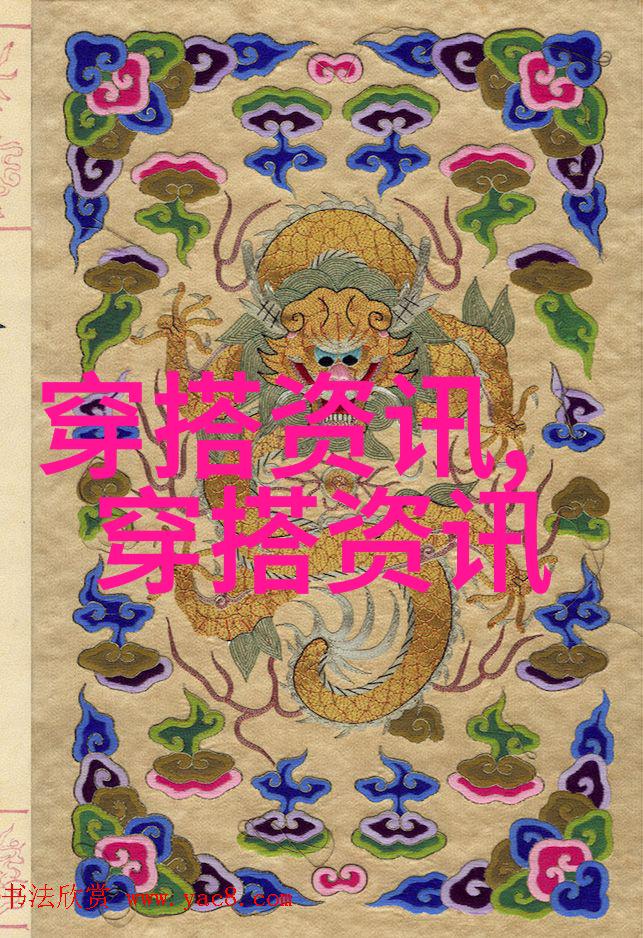 穿搭资讯,
穿搭资讯
书法欣赏 www.yac8.com